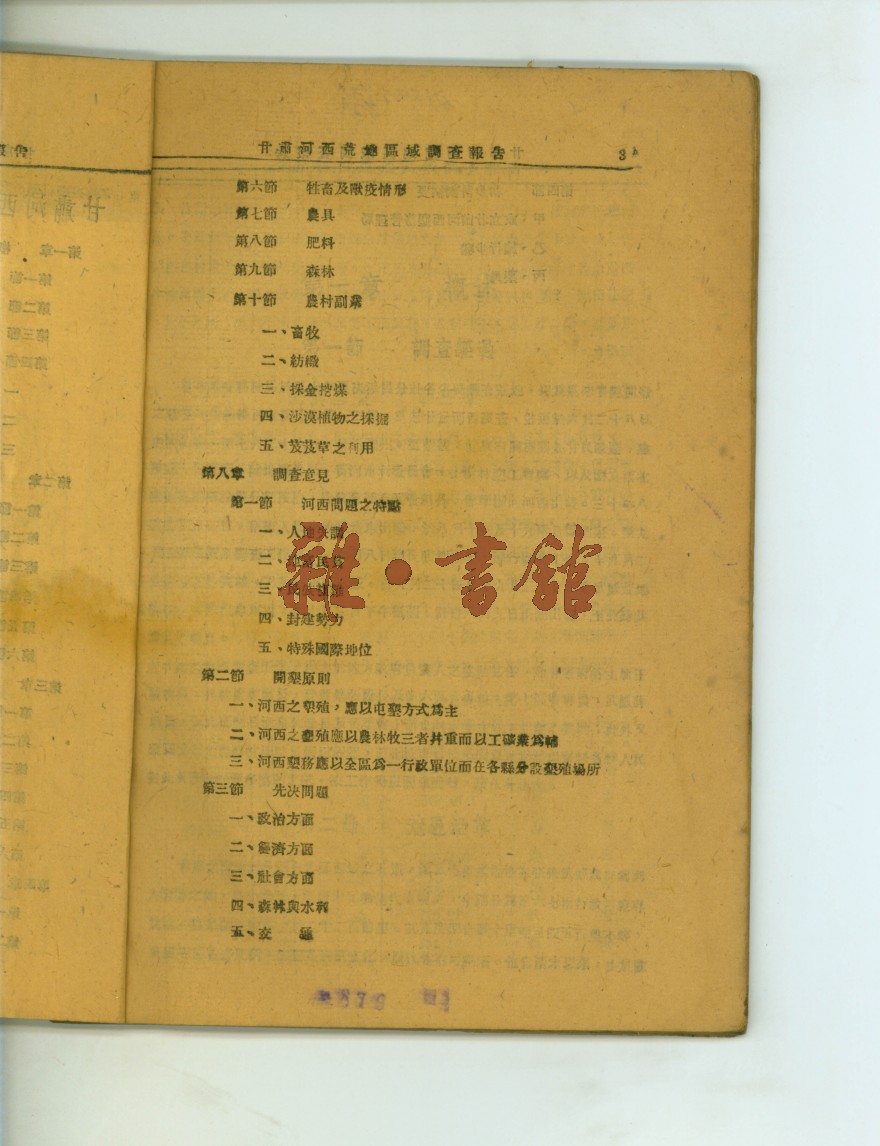 甘肅河西荒地區域調查報告 3
第六節 牲畜及獸疫情形
第七節 農具
第八節 肥料
第九節 森林
第十節 農村副業
一、畜牧
二、紡織
三、採金挖煤
四、沙漠植物之採掘
五、芨芨草之利用
第八章 調查意見
第一節 河西問題之特點
一、人地失調
二、
三、
四、封建勢力
五、特殊國際地位
第二節 開墾原則
一、河西之墾殖，應以屯墾方式爲主
二、河西之墾殖應以農林牧三者并重而以工礦業爲輔
三、河西墾務應以全區爲一行政單位而在各縣分設墾殖場所
第三節 先决問題
一、政治方面
二、經濟方面
三、社會方面
四、森林與水利
五、交 通
雜·書館